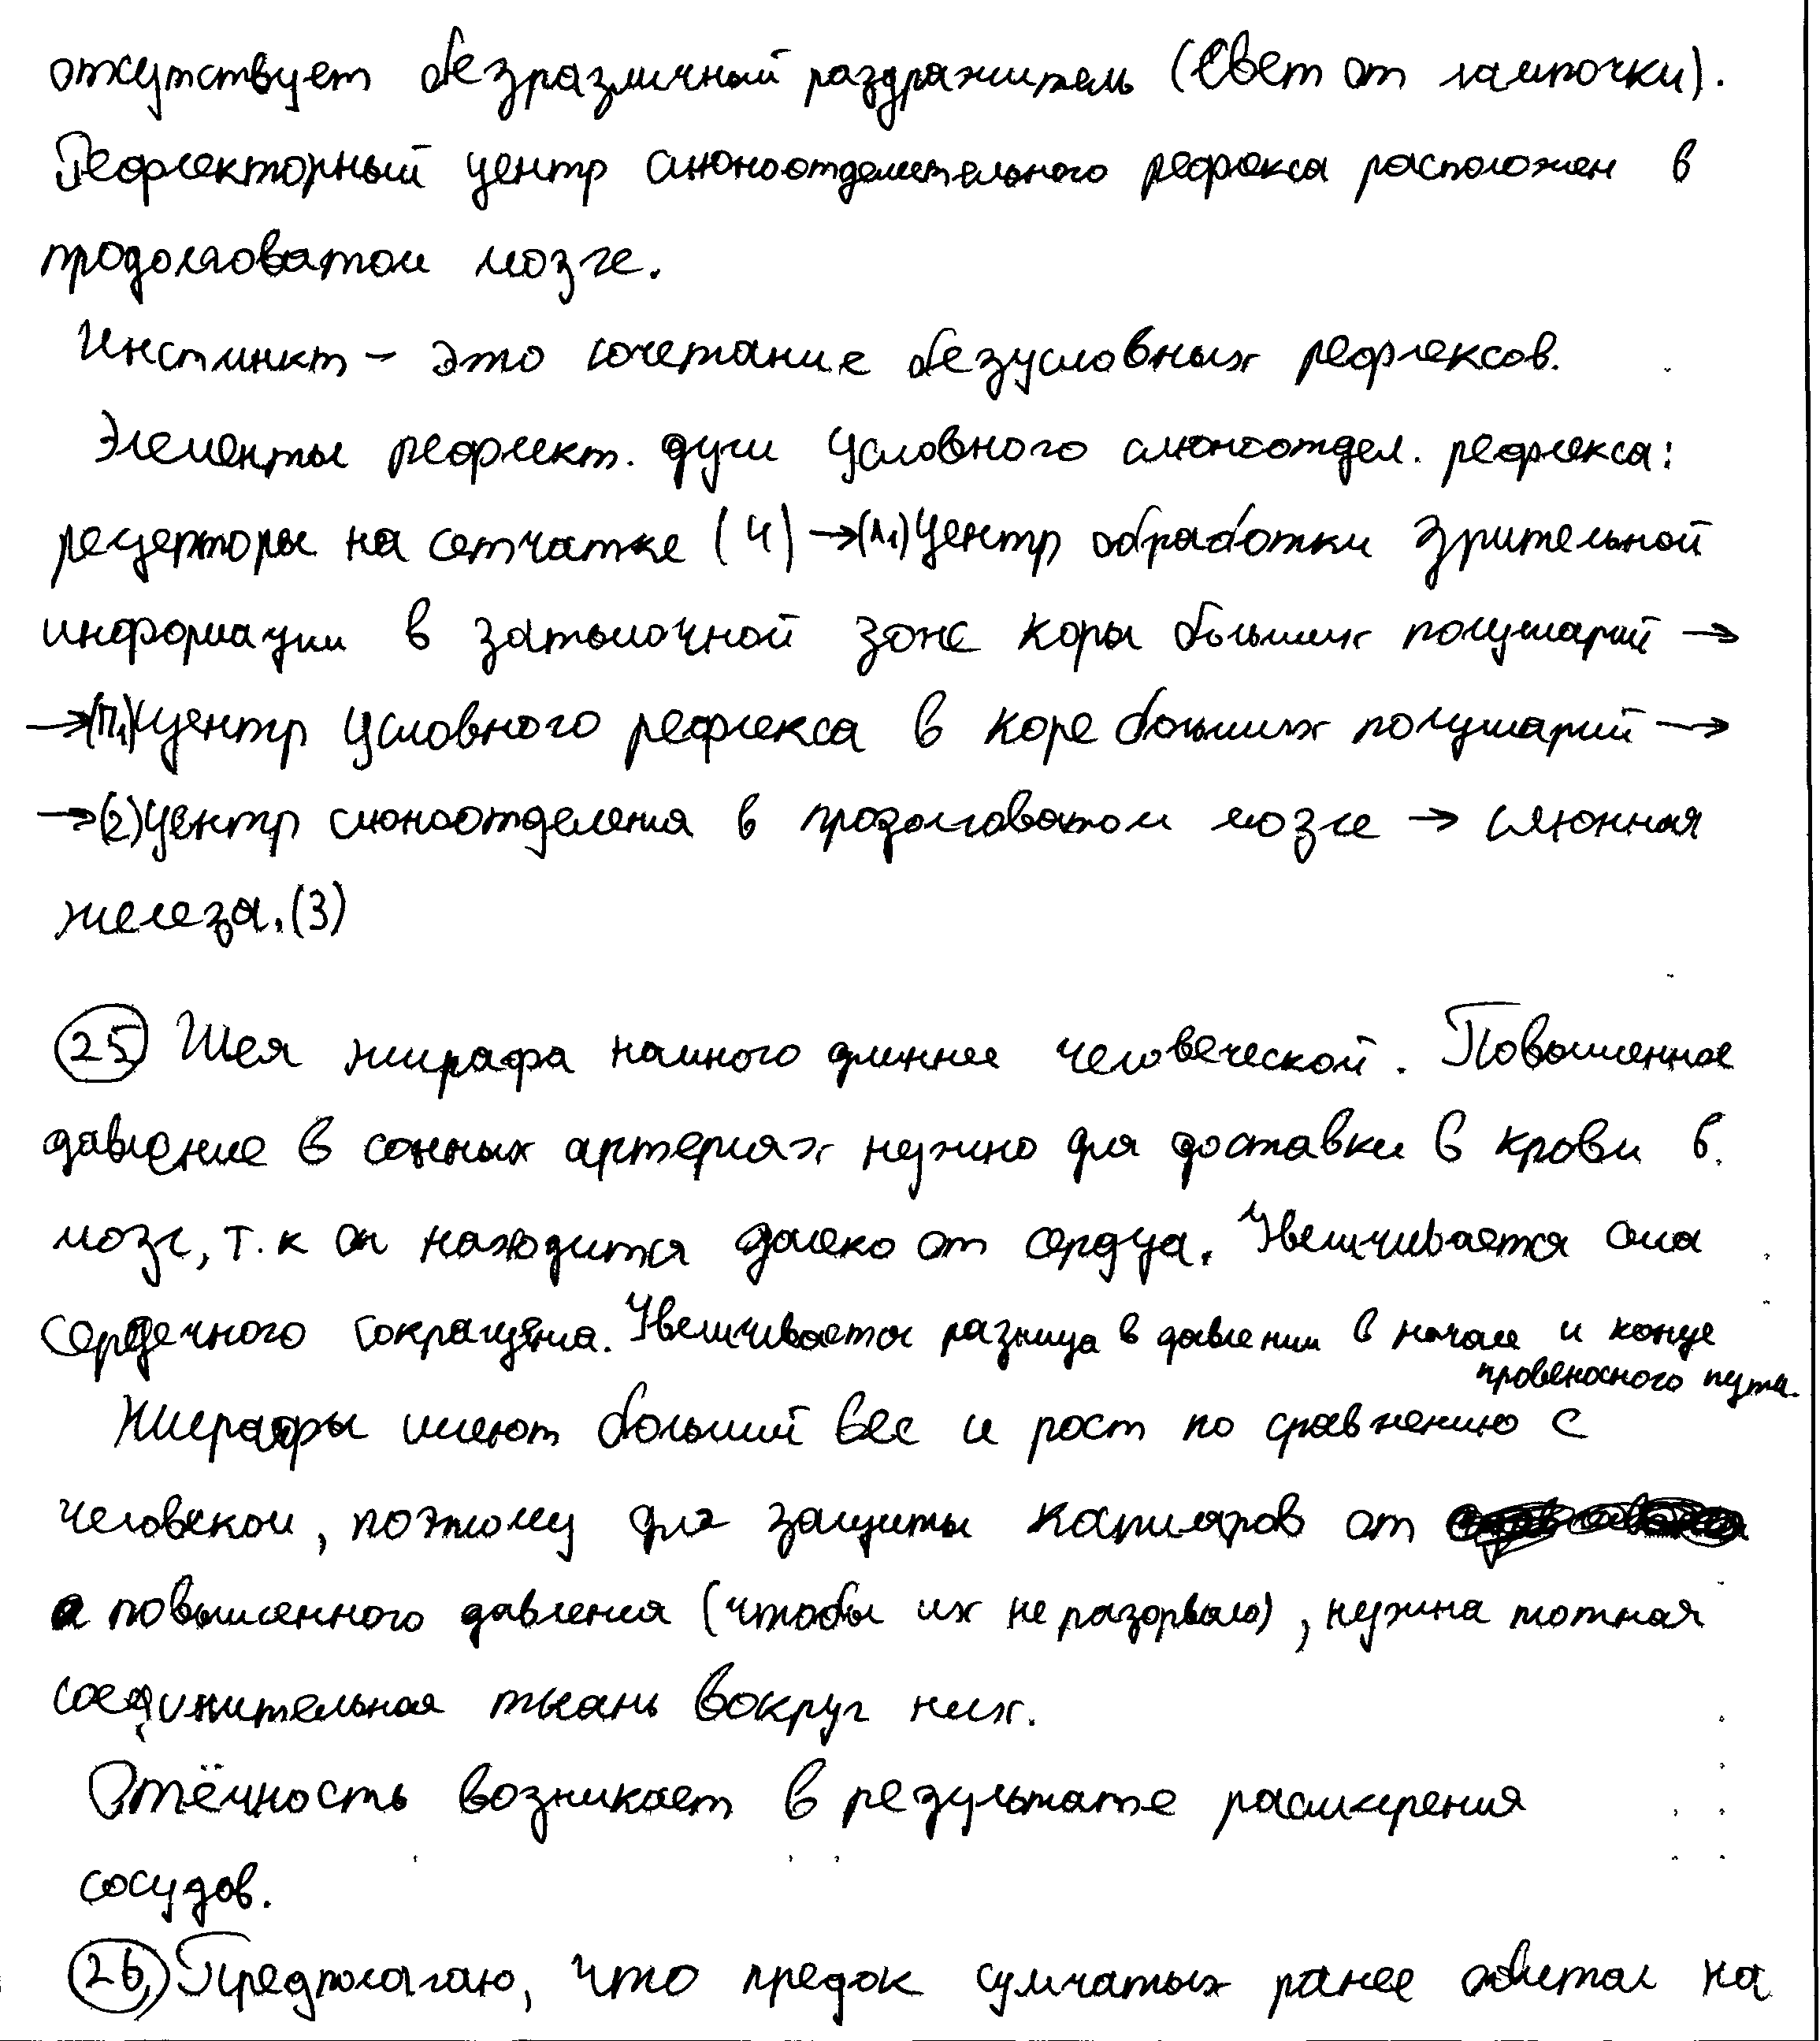 отсутствует безразличный раздражитель (свет от лампочки).
Рефлекторный центр слюноотделительного рефлекса расположен в
продолговатом мозге.
Инстинкт – это сочетание безусловных рефлексов.
Элементы рефлект. дуги условного слюноотдел. рефлекса:
рецепторы на сетчатке (4) →(А₁) центр обработки зрительной
информации в затылочной зоне коры больших полушарий →
→(П₁) центр условного рефлекса в коре больших полушарий →
→(2) центр слюноотделения в продолговатом мозге → слюнная
железа.(3)
25 Шея жирафа намного длиннее человеческой. Повышенное
давление в сонных артериях нужно для доставки в крови в
мозг, т.к он находится далеко от сердца. Увеличивается сила
сердечного сокращения. Увеличивается разница в давлении в начале и конце
кровеносного пути.
Жирафы имеют больший вес и рост по сравнению с
человеком, поэтому для защиты капиляров от
повышенного давления (чтобы их не разорвало), нужна плотная
соединительная ткань вокруг них.
Отёчность возникает в результате расширения
сосудов.
26. Предполагаю, что предок сумчатых ранее обитал на